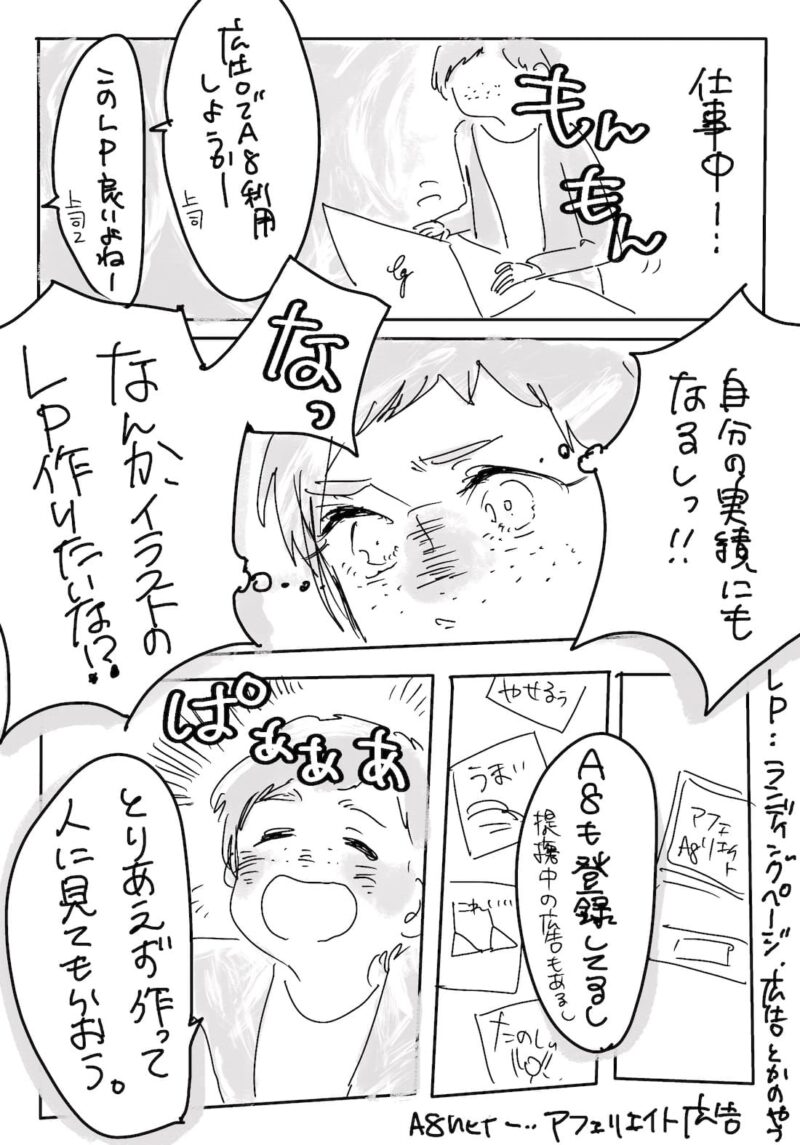 仕事中ー‥
もんもん
広告でA8利用
しようかー
上司
このLP良いよねー
上司2
自分の実績にも
なるしっ!!
なっ
なんか、イラストの
LP作りたいな!?
アフェリエイト
A8
やせるぅ
うまい
これいい
たのしい
A8も登録してるし
提携中の広告もあるし
ぱぁぁぁ
とりあえず作って
人に見てもらおう。
LP‥ランディングページ.広告とかのやつ
A8netー‥アフェリエイト広告